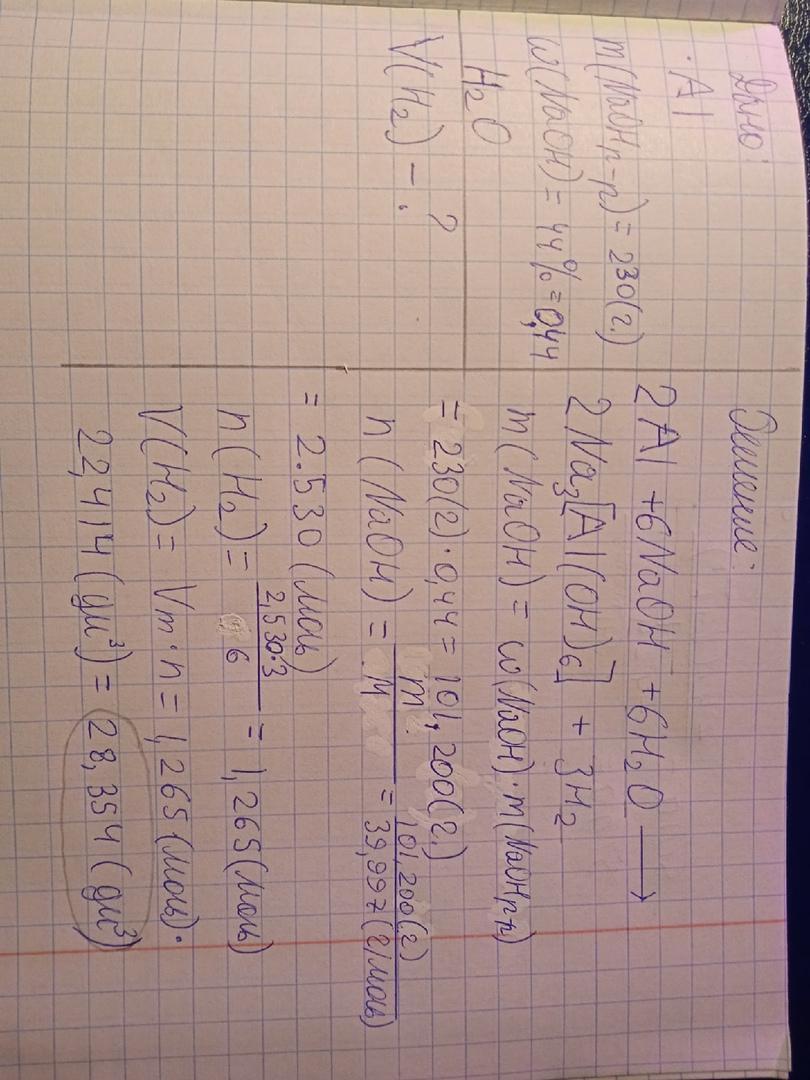 Дано:
Al
m(NaOH р-р) = 230(г.)
ω(NaOH) = 44% = 0,44
H₂O
V(H₂) - ?
Решение:
2Al + 6NaOH + 6H₂O →
2Na₃[Al(OH)₆] + 3H₂
m(NaOH) = ω(NaOH)·m(NaOH р-р)
= 230(г)·0,44 = 101,200(г.)
n(NaOH) = m/M = 101,200(г.)/39,997(г/моль)
= 2.530(моль)
n(H₂) = 2,530·3/6 = 1,265(моль)
V(H₂) = Vm·n = 1,265(моль)·
22,414(дм³) = 28,354(дм³)